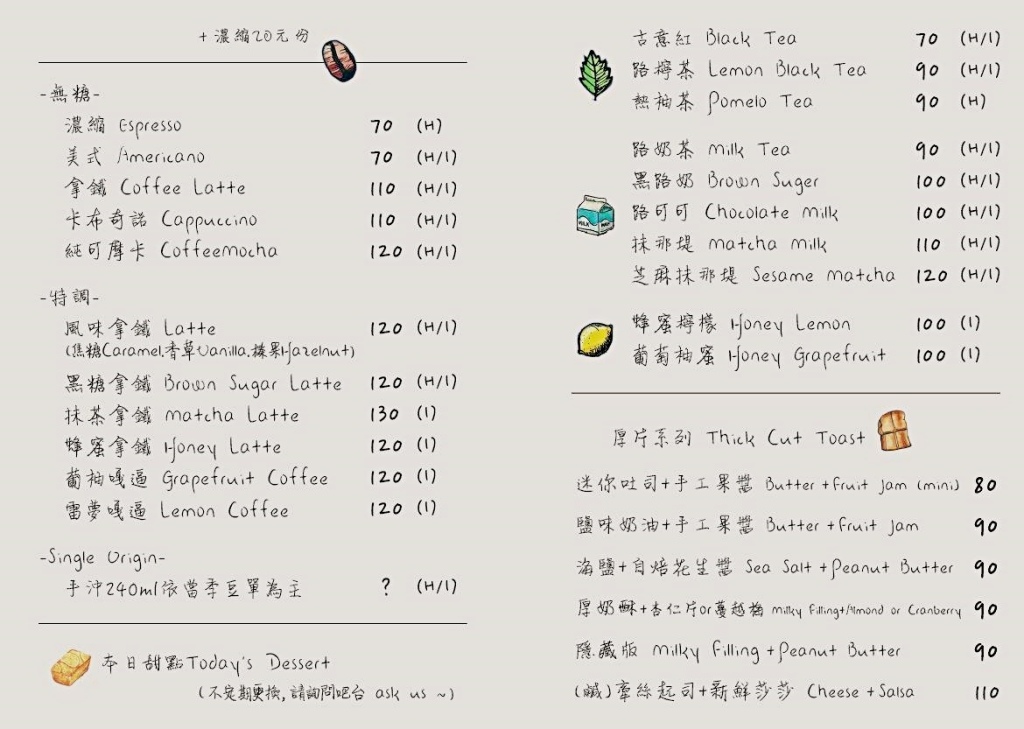 +濃縮20元/份
-無糖-
濃縮 Espresso 70 (H)
美式 Americano 70 (H/I)
拿鐵 Coffee Latte 110 (H/I)
卡布奇諾 Cappuccino 110 (H/I)
純可摩卡 Coffeemocha 120 (H/I)
-特調-
風味拿鐵 Latte 120 (H/I)
(焦糖Caramel.香草Vanilla.榛果Hazelnut)
黑糖拿鐵 Brown Sugar Latte 120 (H/I)
抹茶拿鐵 matcha Latte 130 (I)
蜂蜜拿鐵 Honey Latte 120 (I)
葡柚嘎逼 Grapefruit Coffee 120 (I)
雷夢嘎逼 Lemon Coffee 120 (I)
-Single Origin-
手沖240ml依當季豆單為主 ? (H/I)
本日甜點Today's Dessert
(不定期更換,請詢問吧台 ask us ~)
古意紅 Black Tea 70 (H/I)
路檸茶 Lemon Black Tea 90 (H/I)
熱柚茶 Pomelo Tea 90 (H)
路奶茶 milk Tea 90 (H/I)
黑路奶 Brown Suger 100 (H/I)
路可可 Chocolate milk 100 (H/I)
抹那堤 matcha milk 110 (H/I)
芝麻抹那堤 Sesame matcha 120 (H/I)
蜂蜜檸檬 Honey Lemon 100 (I)
葡萄柚蜜 Honey Grapefruit 100 (I)
厚片系列 Thick Cut Toast
迷你吐司+手工果醬 Butter +Fruit Jam (mini) 80
鹽味奶油+手工果醬 Butter +Fruit Jam 90
海鹽+自焙花生醬 Sea Salt +Peanut Butter 90
厚奶酥+杏仁片or蔓越梅 milky Filling+Almond or Cranberry 90
隱藏版 milky Filling +Peanut Butter 90
(鹹)牽絲起司+新鮮莎莎 Cheese +Salsa 110